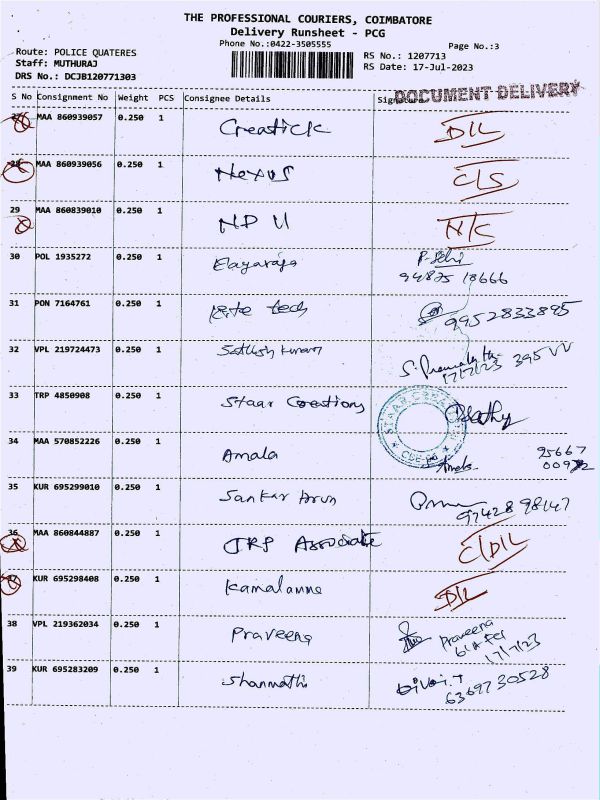 THE PROFESSIONAL COURIERS, COIMBATORE
Delivery Runsheet - PCG
Phone No.:0422-3505555
Page No.:3
Route: POLICE QUATERES
Staff: MUTHURAJ
DRS No.: DCJB120771303
RS No.: 1207713
RS Date: 17-Jul-2023
DOCUMENT DELIVERY
S No Consignment No Weight PCS Consignee Details Signature
MAA 860939057 0.250 1 Creastick D/L
MAA 860939056 0.250 1 Nexus C/S
29 MAA 860839010 0.250 1 NDU N/C
30 POL 1935272 0.250 1 Elayaraja
94875 18666
31 PON 7164761 0.250 1 Kite tech 9952833895
32 VPL 219724473 0.250 1 Sathish kumar
17/7/23 395 VV
33 TRP 4850908 0.250 1 Staar Creations
34 MAA 570852226 0.250 1 Amala Amala
35 KUR 695299010 0.250 1 Sankar Arun
97428 98147
36 MAA 860844887 0.250 1 Associate C/D/L
37 KUR 695298408 0.250 1 Kamalamma D/L
38 VPL 219362034 0.250 1 Praveena Praveena
17/7/23
39 KUR 695283209 0.250 1 Shanmathi
63697 30528